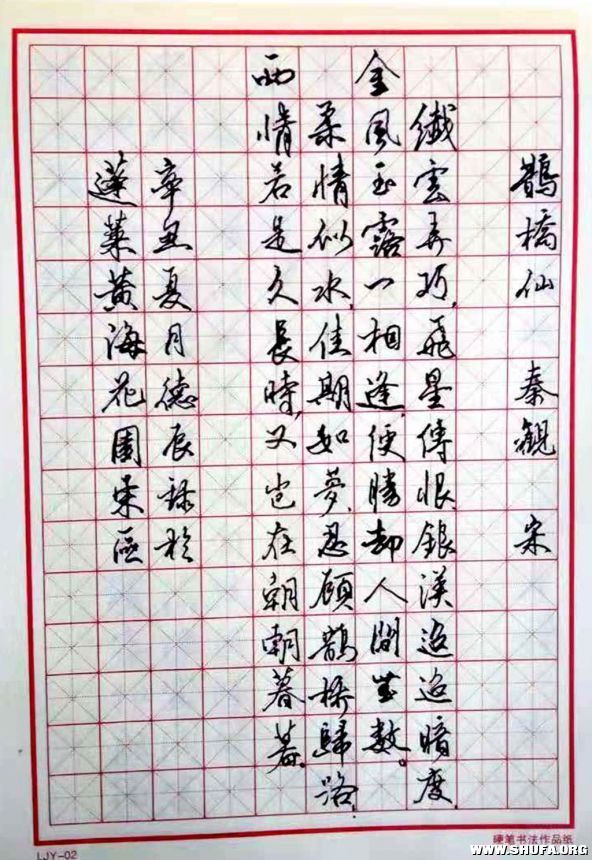 鵲橋仙 秦觀 宋
纖雲弄巧,飛星傳恨,銀漢迢迢暗度,
金風玉露一相逢,便勝却人間無數。
柔情似水,佳期如夢,忍顧鵲橋歸路,
兩情若是久長時,又豈在朝朝暮暮。
辛丑夏月德辰錄於
蓬萊黃海花園東區
LJY-02
硬笔书法作品纸
WWW.SHUFA.ORG